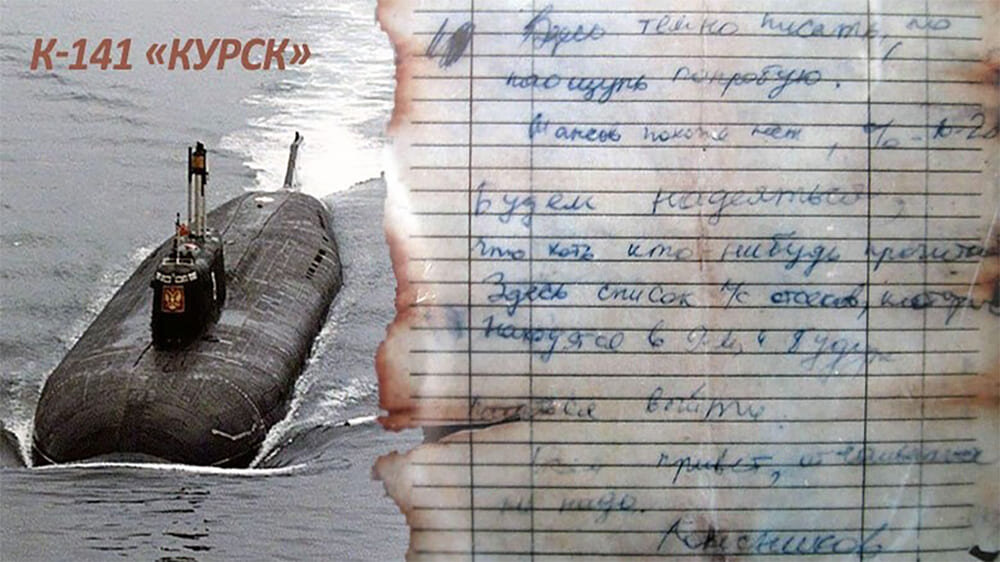 К-141 «КУРСК»
Здесь темно писать, но
наощупь попробую.
Шансов похоже нет, % - 10-20
Будем надеяться,
что хоть кто нибудь прочитает
Здесь список л/с отсеков, которые
находятся в 9-м и будут
пытаться выйти.
привет, отчаиваться
не надо.
Колесников